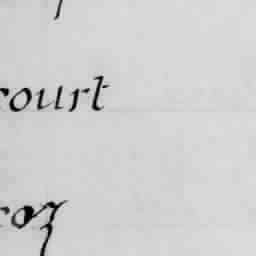 court
roz